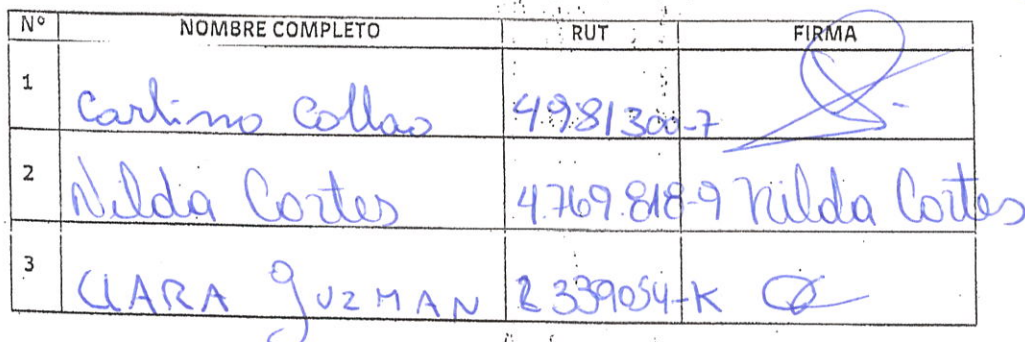 Nº NOMBRE COMPLETO RUT FIRMA
1 Carlino Collao 4.981300-7
2 Nilda Cortes 4.769.818-9 Nilda Cortes
3 CLARA GUZMAN 2339054-K